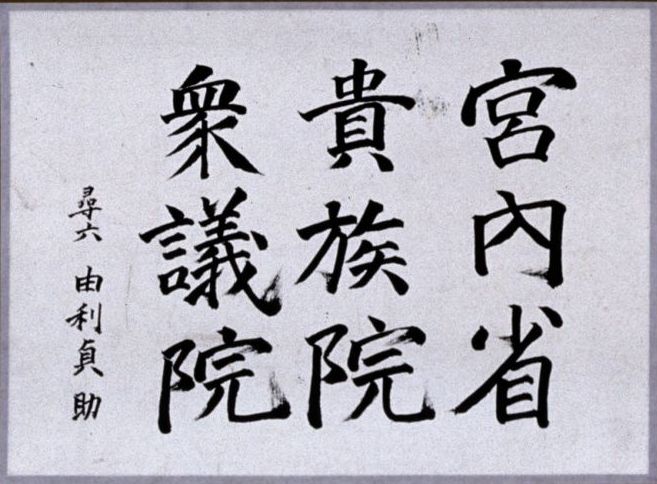 宮内省
貴族院
衆議院
尋六 由利貞助